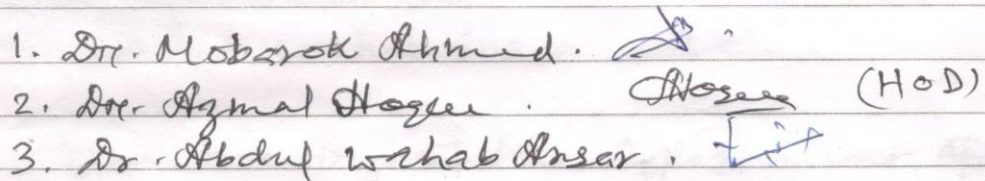 1. Dr. Mobarok Ahmed.
2. Dr. Azmal Hoque. Hoque (HoD)
3. Dr. Abdul Wahab Ansar.